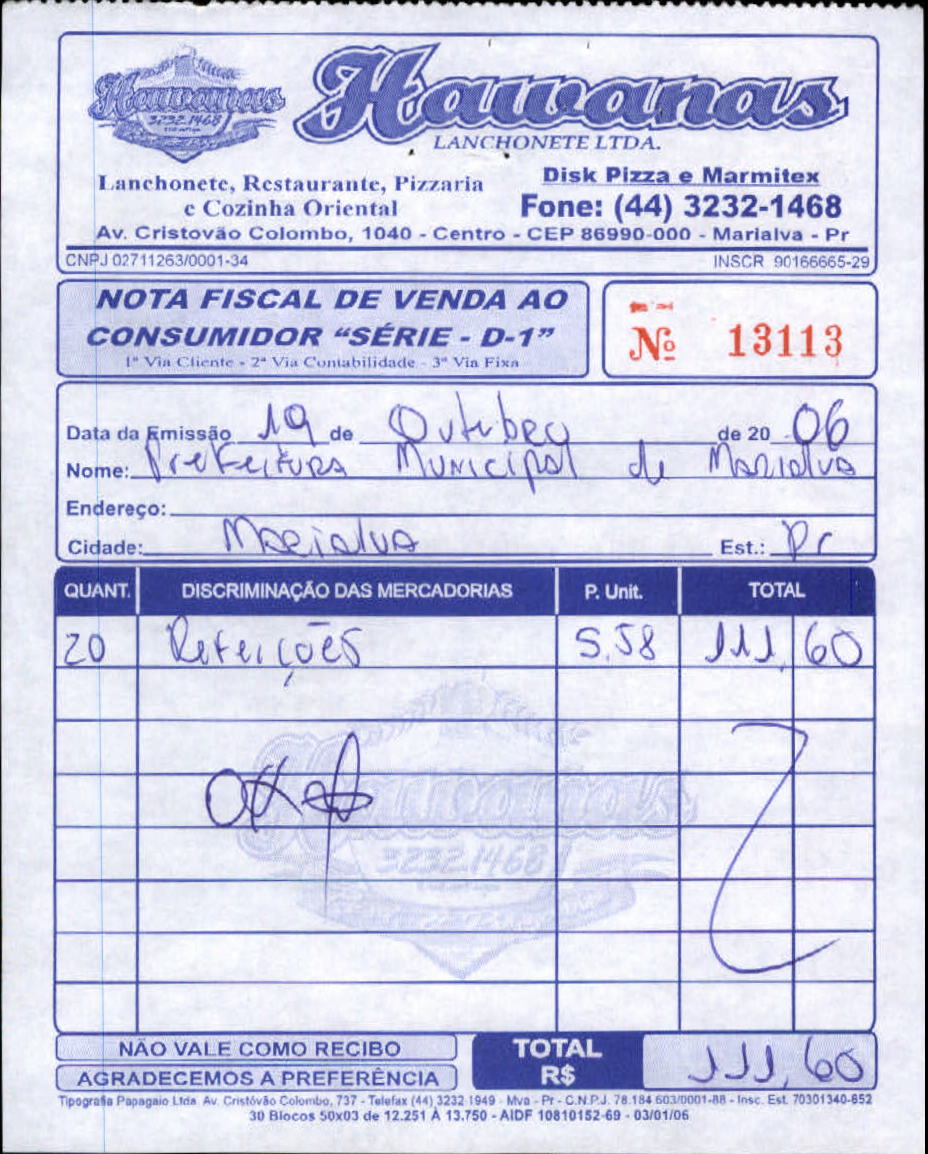 Hawanas
3232.1468
Hawanas
LANCHONETE LTDA.
Lanchonete, Restaurante, Pizzaria
e Cozinha Oriental
Disk Pizza e Marmitex
Fone: (44) 3232-1468
Av. Cristovão Colombo, 1040 - Centro - CEP 86990-000 - Marialva - Pr
CNPJ 02711263/0001-34 INSCR 90166665-29
NOTA FISCAL DE VENDA AO
CONSUMIDOR "SÉRIE - D-1"
1ª Via Cliente - 2ª Via Contabilidade - 3ª Via Fixa
Nº 13113
Data da Emissão 19 de Outubro de 20 06
Nome: Prefeitura Municipal de Marialva
Endereço:
Cidade: Marialva Est.: Pr
QUANT. DISCRIMINAÇÃO DAS MERCADORIAS P. Unit. TOTAL
20 Refeições 5,58 111,60
Hawanas
3232.1468
NÃO VALE COMO RECIBO
AGRADECEMOS A PREFERÊNCIA
TOTAL
R$ 111,60
Tipografia Papagaio Ltda. Av. Cristóvão Colombo, 737 - Telefax (44) 3232 1949 - Mva - Pr - C.N.P.J. 78.184 603/0001-88 - Insc. Est. 70301340-652
30 Blocos 50x03 de 12.251 À 13.750 - AIDF 10810152-69 - 03/01/06